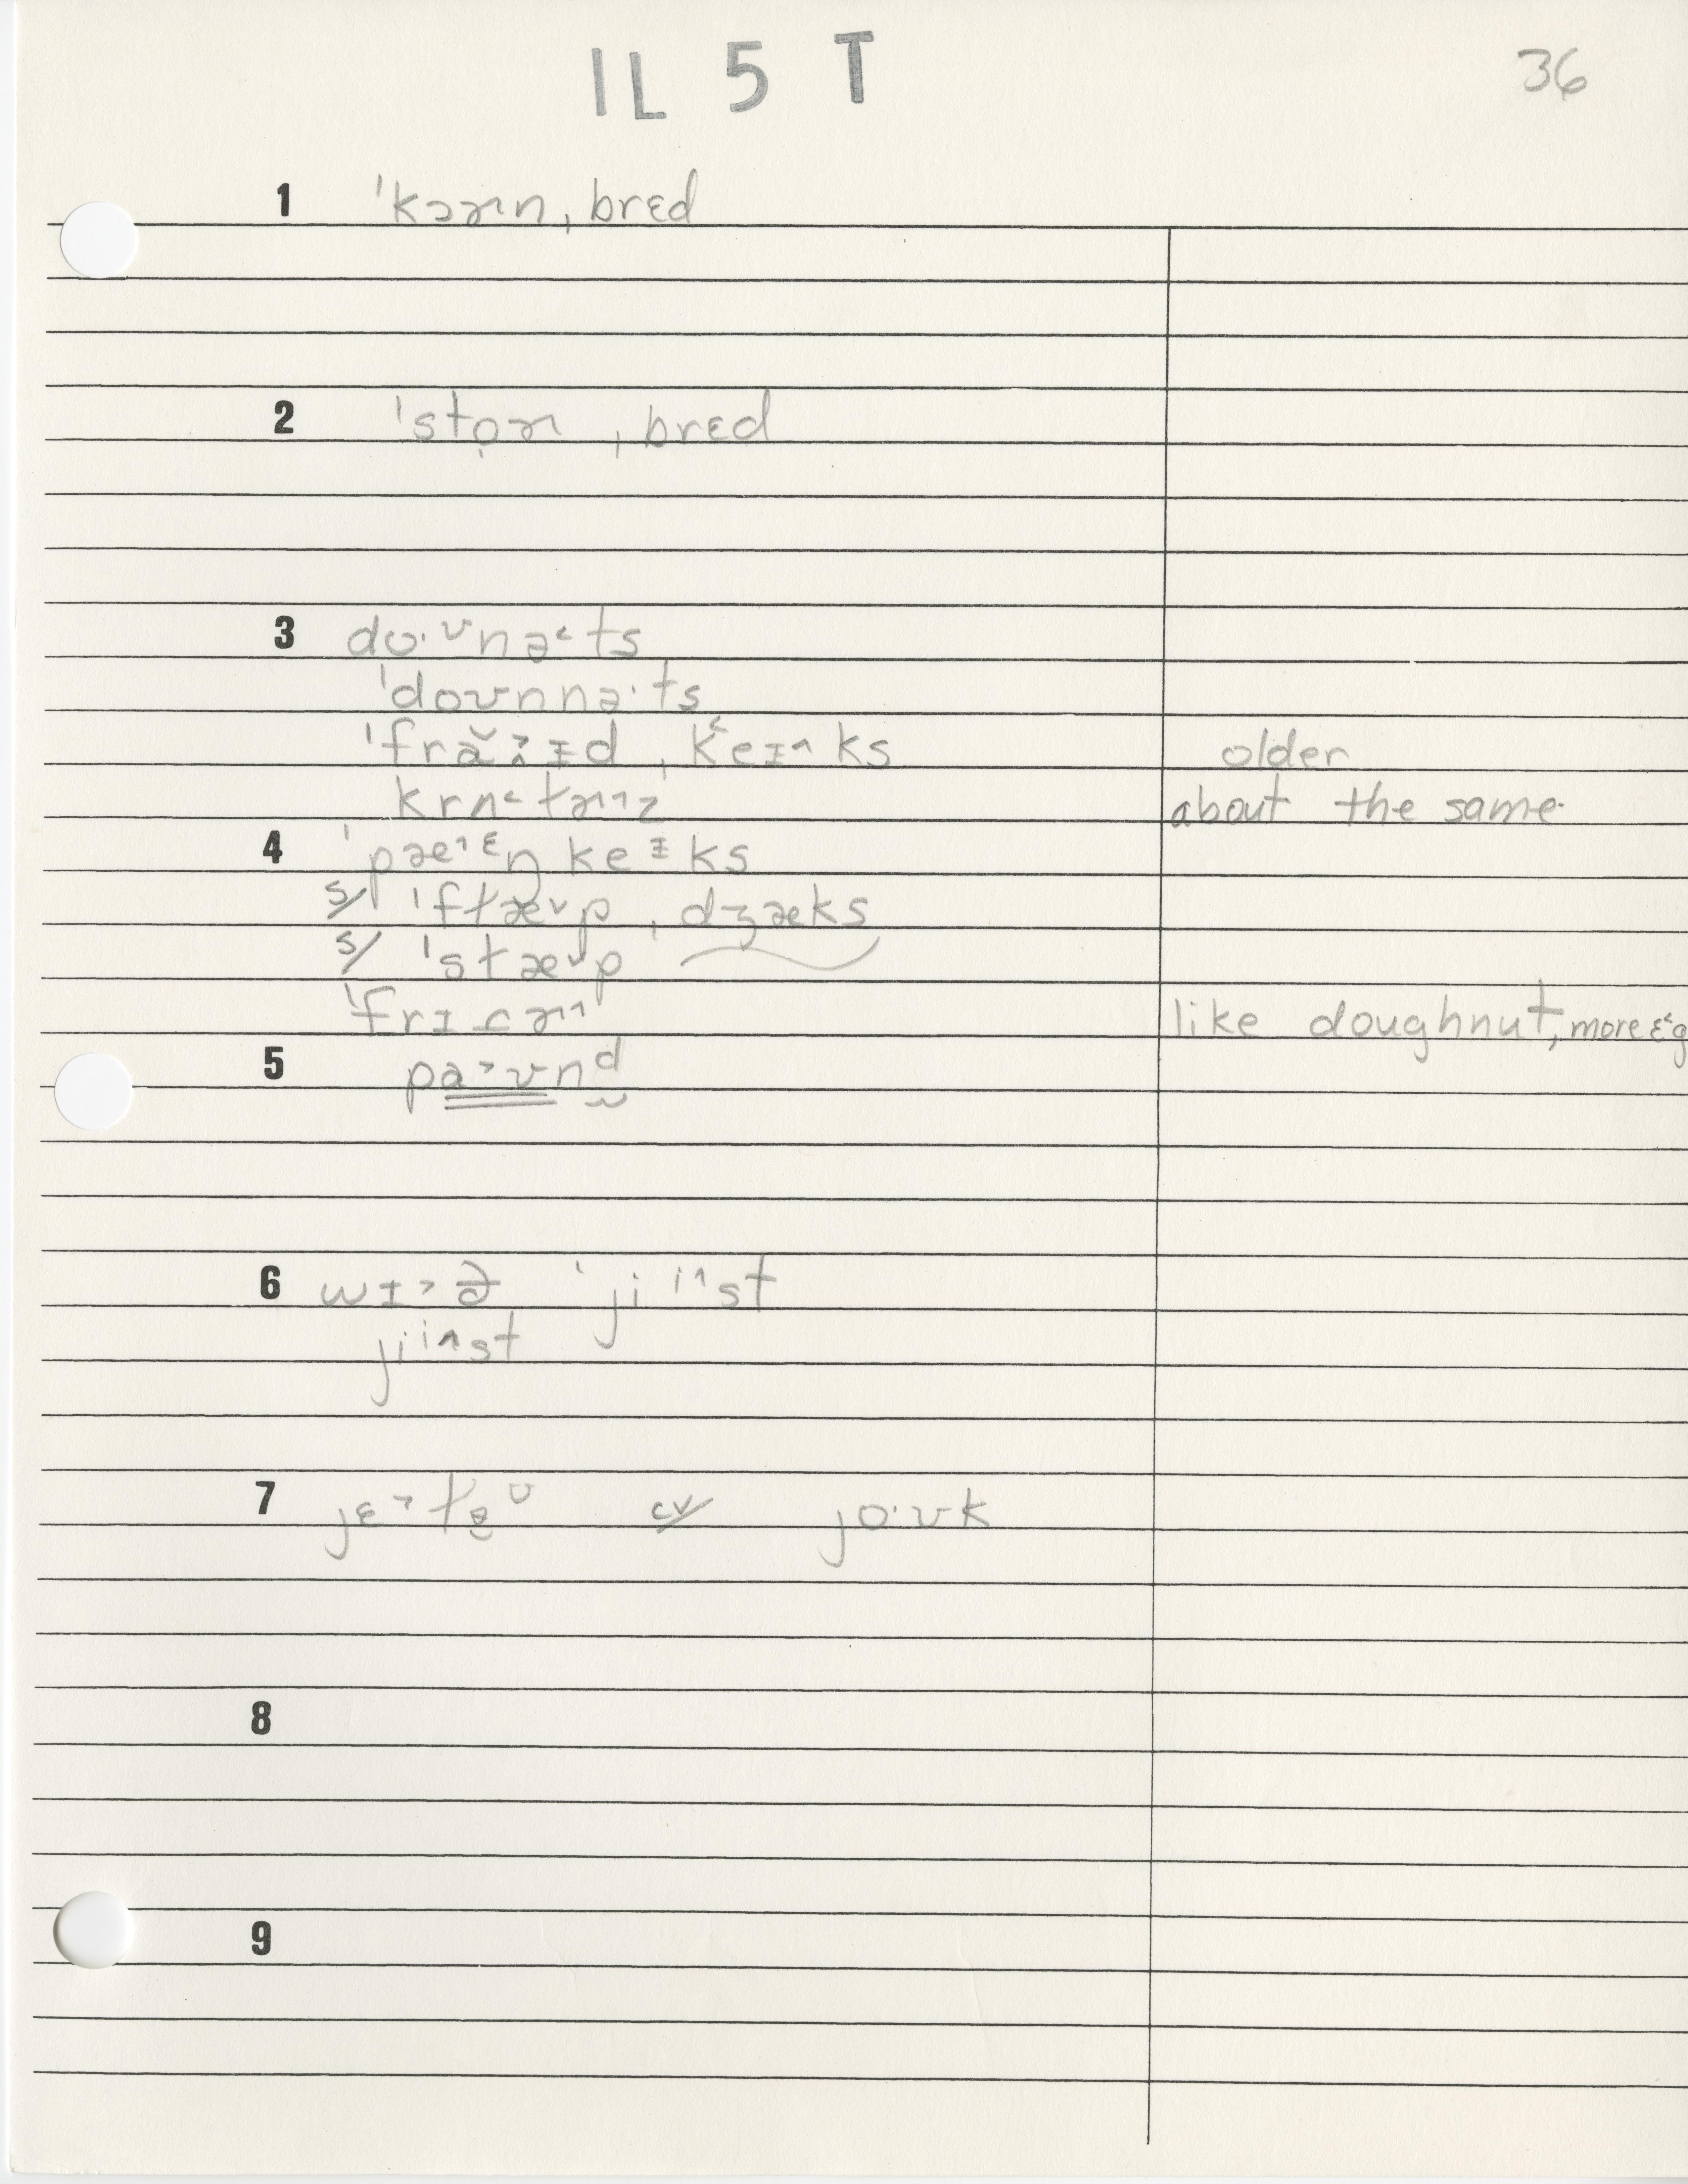 IL 5 T
36
1 ˈkɔɚn ˌbrɛd
2 ˈstọɚ ˌbrɛd
3 do·ᶷnə˂ts
ˈdoʊnnə·ts
ˈfra ɪd ˌk˂eɪ^ks older
krʌ˂tɚ^^z about the same
4 ˈpæ^ᵋŋkeᵻks
s/ ˈflæ˅pˌdʒæks
s/ ˈstæ˅p
ˈfrɪ ɚ^^ like doughnut, more ɛ˂g
5 pa˃ʊnᵈ
6 wɪ˃ə ˈjiⁱ^st
jiⁱ^st
7 jɛ˃ ə cv/ jo·ʊk
8
9